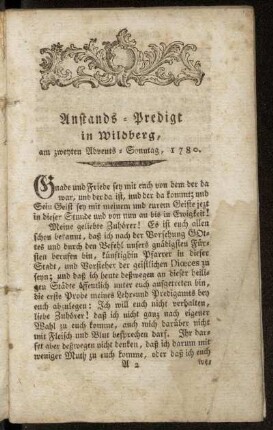 Anstands-Predigt
in Wildberg,
am zweyten Advents-Sonntag, 1780.
Gnade und Friede sey mit euch von dem der da
war, und der da ist, und der da kommt; und
Sein Geist sey mit meinem und eurem Geiste jezt
in dieser Stunde und von nun an bis in Ewigkeit!
Meine geliebte Zuhörer! Es ist euch allen
schon bekannt, daß ich nach der Vorsehung Got-
tes und durch den Befehl unsers gnädigsten Fürs-
sten berufen bin, künftighin Pfarrer in dieser
Stadt, und Vorsteher der geistlichen Diœces zu
seyn; und daß ich heute deßwegen an dieser heili-
gen Stätte öffentlich unter euch aufgetretten bin,
die erste Probe meines Lehr- und Predigamts bey
euch abzulegen: Ich will euch nicht verhalten,
liebe Zuhörer! daß ich nicht ganz nach eigener
Wahl zu euch komme, auch mich darüber nicht
mit Fleisch und Blut besprochen darf. Ihr dör-
fet aber deßwegen nicht denken, daß ich darum mit
weniger Muth zu euch komme, oder daß ich euch
A 2